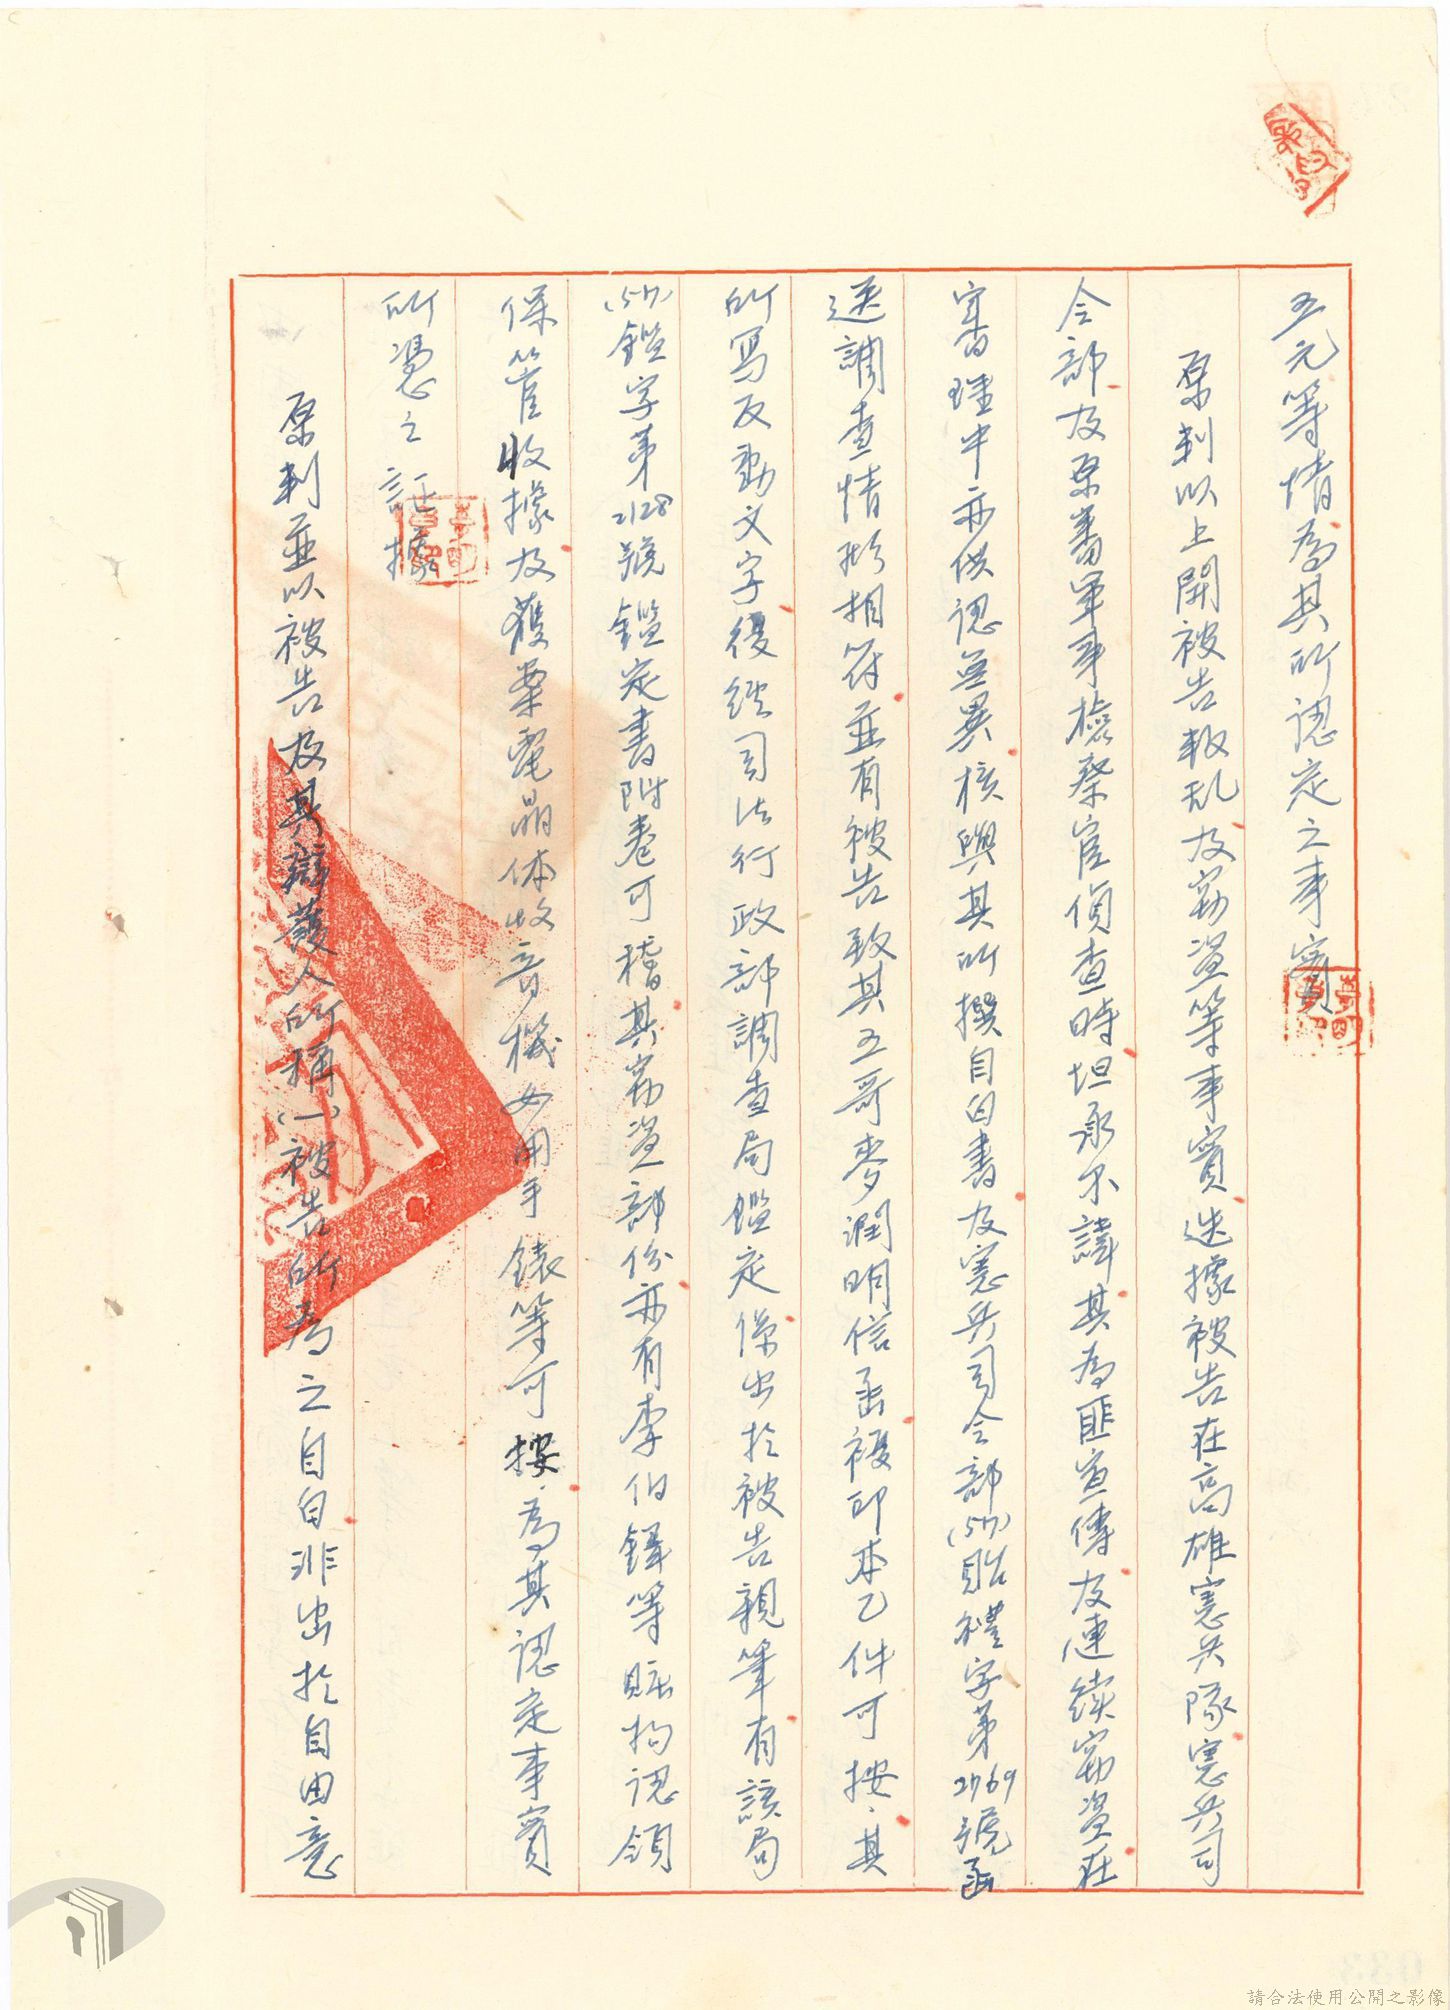 五元等情為其所認定之事實
原判以上開被告叛乱及窃盜等事實迭據被告在高雄憲兵隊憲兵司
令部及原審軍事檢察官偵查時坦承不諱其為匪宣傳及連續窃盜在
審理中亦供認無異核與其所撰自白書及憲兵司令部(57)貽禮字第2769號函
送調查情形相符並有被告致其五哥麥潤明信函複印本乙件可按、其
所寫反動文字復經司法行政部調查局鑑定係出於被告親筆有該局
(57)鑑字第2128號鑑定書附卷可稽其窃盜部份亦有李伯鐸等賍物認領
保管收據及獲案電晶体收音機女用手錶等可按、為其認定事實
所憑之証據
原判並以被告及其辯護人所稱(一)被告所為之自白非出於自由意
請合法使用公開之影像